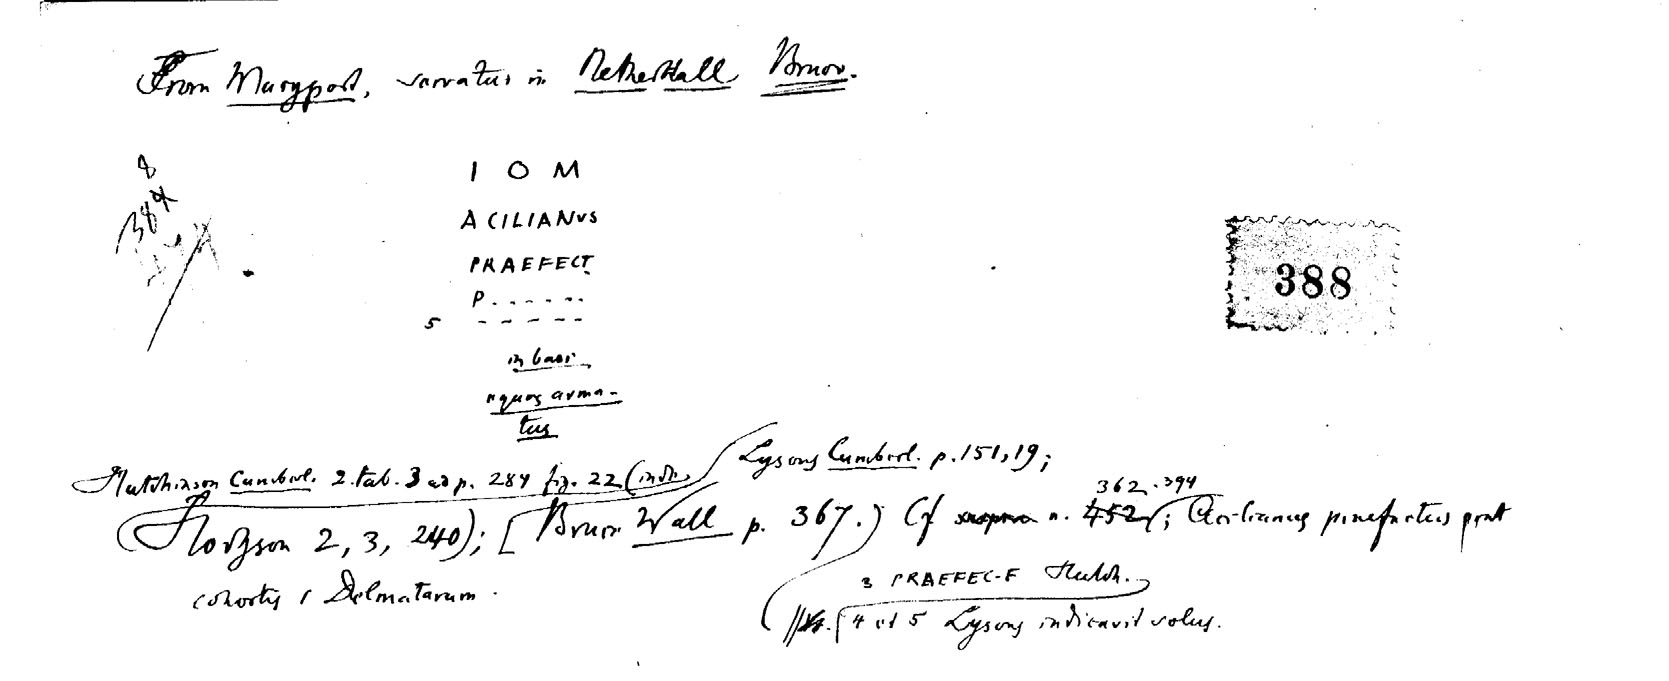 From Maryport, servatus in Netherhall Bruce.
8
384
I O M
ACILIANVS
PRAEFECT
P......
5 - - - - -
388
in basi
eques arma-
tus
Hutchinson Cumberl. 2. tab. 3 ad p. 284 fig. 22 (inde
Lysons Cumberl. p. 151, 19;
362. 394
Hodgson 2, 3, 240); [Bruce Wall p. 367.) Cf n. 452; Acilianus praefectus
cohortis I Delmatarum.
3 PRAEFEC-F Hutch.
4 et 5 Lysons indicavit solus.